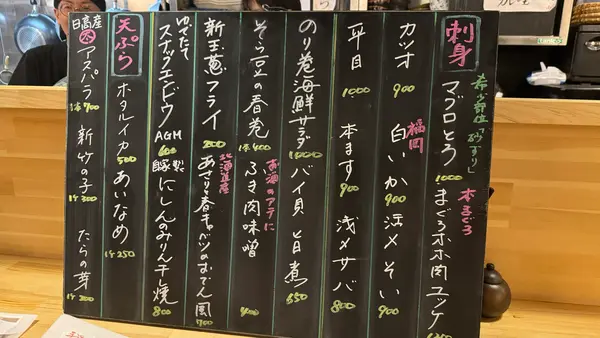 刺身
希少部位「砂ずり」
マグロとろ 1000
本まぐろ
まぐろホホ肉ユッケ
カツオ 900
福岡
白いか 900
活〆そい
平目 1000
本ます 900
浅〆サバ 800
のり巻海鮮サラダ 1000
バイ貝旨煮 550
そら豆の春巻 1本400
お酒のアテに
ふき肉味噌 400
新玉葱フライ 200
北海道産
あさりと春キャベツのおでん風 700
ゆでたて
スナックエンドウ AGH 600
自家製
にしんのみりん干し焼 800
天ぷら
ホタルイカ 500
あいなめ 1ケ250
日高産
アスパラ 1本700
新竹の子 1ケ300
たらの芽 1ケ200